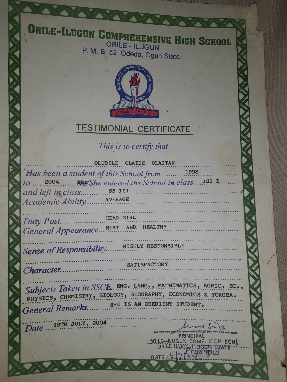 ORILE-ILUGUN COMPREHENSIVE HIGH SCHOOL
ORILE - ILUGUN
P. M. B. 52 Odeda, Ogun State.
TESTIMONIAL CERTIFICATE
This is to certify that
OLUDELE OLAIDE
Has been a student of this School from 1998
to 2004 She entered the School in class JSS I
and left in class SS III
Academic Ability AVERAGE
Duty Post HEAD GIRL
General Appearance NEAT AND HEALTHY
Sense of Responsibility HIGHLY RESPONSIBLE
Character SATISFACTORY
Subjects Taken in SSCE ENG. LANG., MATHEMATICS, AGRIC. SC.,
PHYSICS, CHEMISTRY, BIOLOGY, GEOGRAPHY, ECONOMICS & YORUBA.
General Remarks SHE IS AN OBEDIENT STUDENT.
Date JULY, 2004
PRINCIPAL
ORILE-ILUGUN COMP. HIGH SCHL
PRINCIPAL
DATE